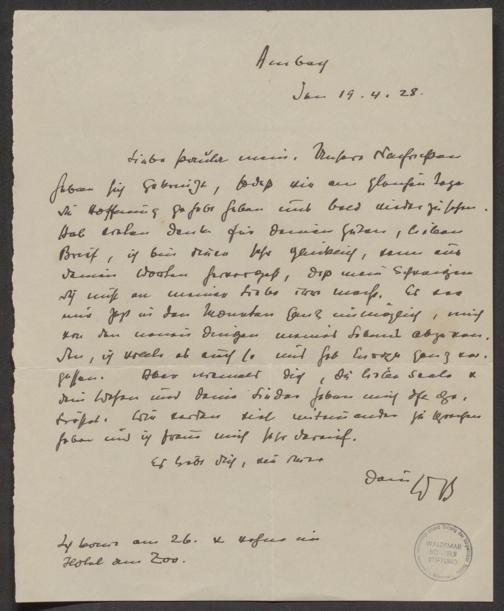 Ambach
den 19.4.28.
Liebe Paula mein. Unsere Nachrichten
haben sich gekreuzt, sodass wir am gleichen Tage
die Hoffnung gehabt haben uns bald wiederzusehen.
Hab vielen Dank für deinen guten, lieben
Brief, ich bin darüber sehr glücklich, denn aus
deinen Worten hervorgeht, dass mein Schweigen
dich nicht an meiner Liebe irre macht. Es war
mir jetzt in den Monaten ganz unmöglich, mich
von den neuen Dingen meines Lebens abzuwen-
den, ich wollte es auch so und hab Europa ganz ver-
gessen. Aber niemals dich, du liebe Seele &
dein Wesen und deine Lieder haben mich oft ge-
tröstet. Wir werden viel miteinander zu sprechen
haben und ich freue mich sehr darauf.
Es liebt dich, wie immer
Dein WB
Ich komme am 26. & wohne im
Hotel am Zoo.
WALDEMAR
BONSELS
STIFTUNG